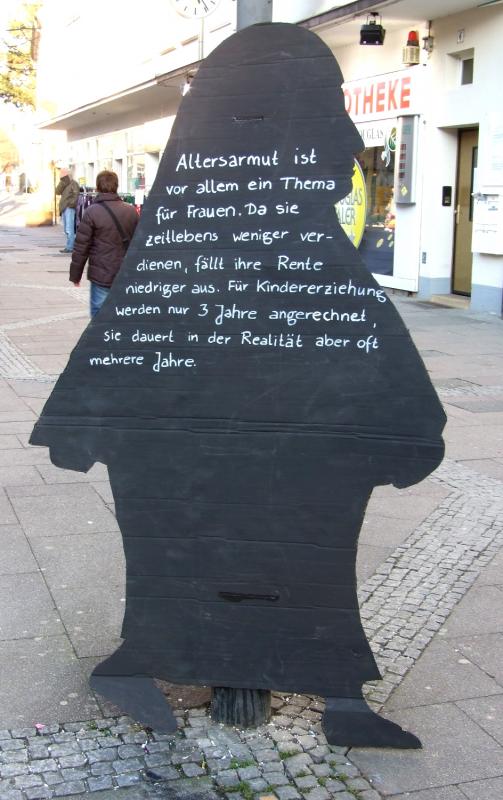 OTHEKE
Altersarmut ist
vor allem ein Thema
für Frauen. Da sie
zeitlebens weniger ver-
dienen, fällt ihre Rente
niedriger aus. Für Kindererziehung
werden nur 3 Jahre angerechnet,
sie dauert in der Realität aber oft
mehrere Jahre.